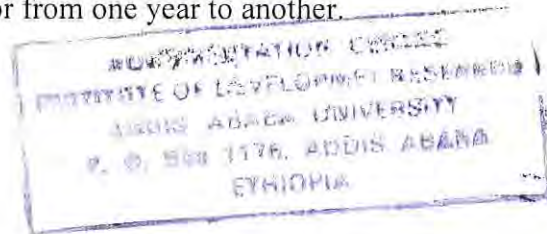 or from one year to another.
DOCUMENTATION CENTRE
INSTITUTE OF DEVELOPMENT RESEARCH
ADDIS ABABA UNIVERSITY
P. O. Box 1176, ADDIS ABABA
ETHIOPIA